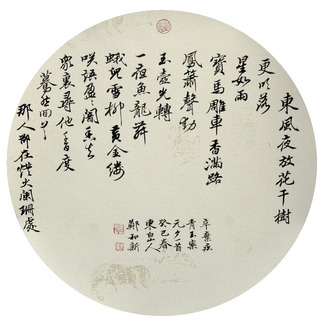 東風夜放花千樹
更吹落
星如雨
寶馬雕車香滿路
鳳簫聲動
玉壺光轉
一夜魚龍舞
蛾兒雪柳黃金縷
咲語盈盈闇香去
眾裏尋他千百度
驀然回首
那人卻在燈火闌珊處
辛棄疾
青玉案
元夕一首
癸巳春
東岳人
鄭和新